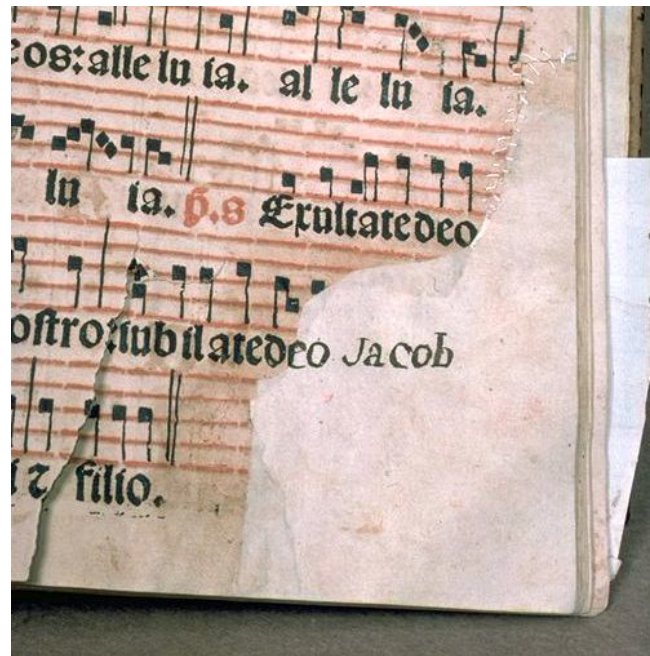 eos: alle lu ia. al le lu ia.
lu ia. p̄.s Exultate deo
ostro: iubilate deo Jacob
i ⁊ filio.